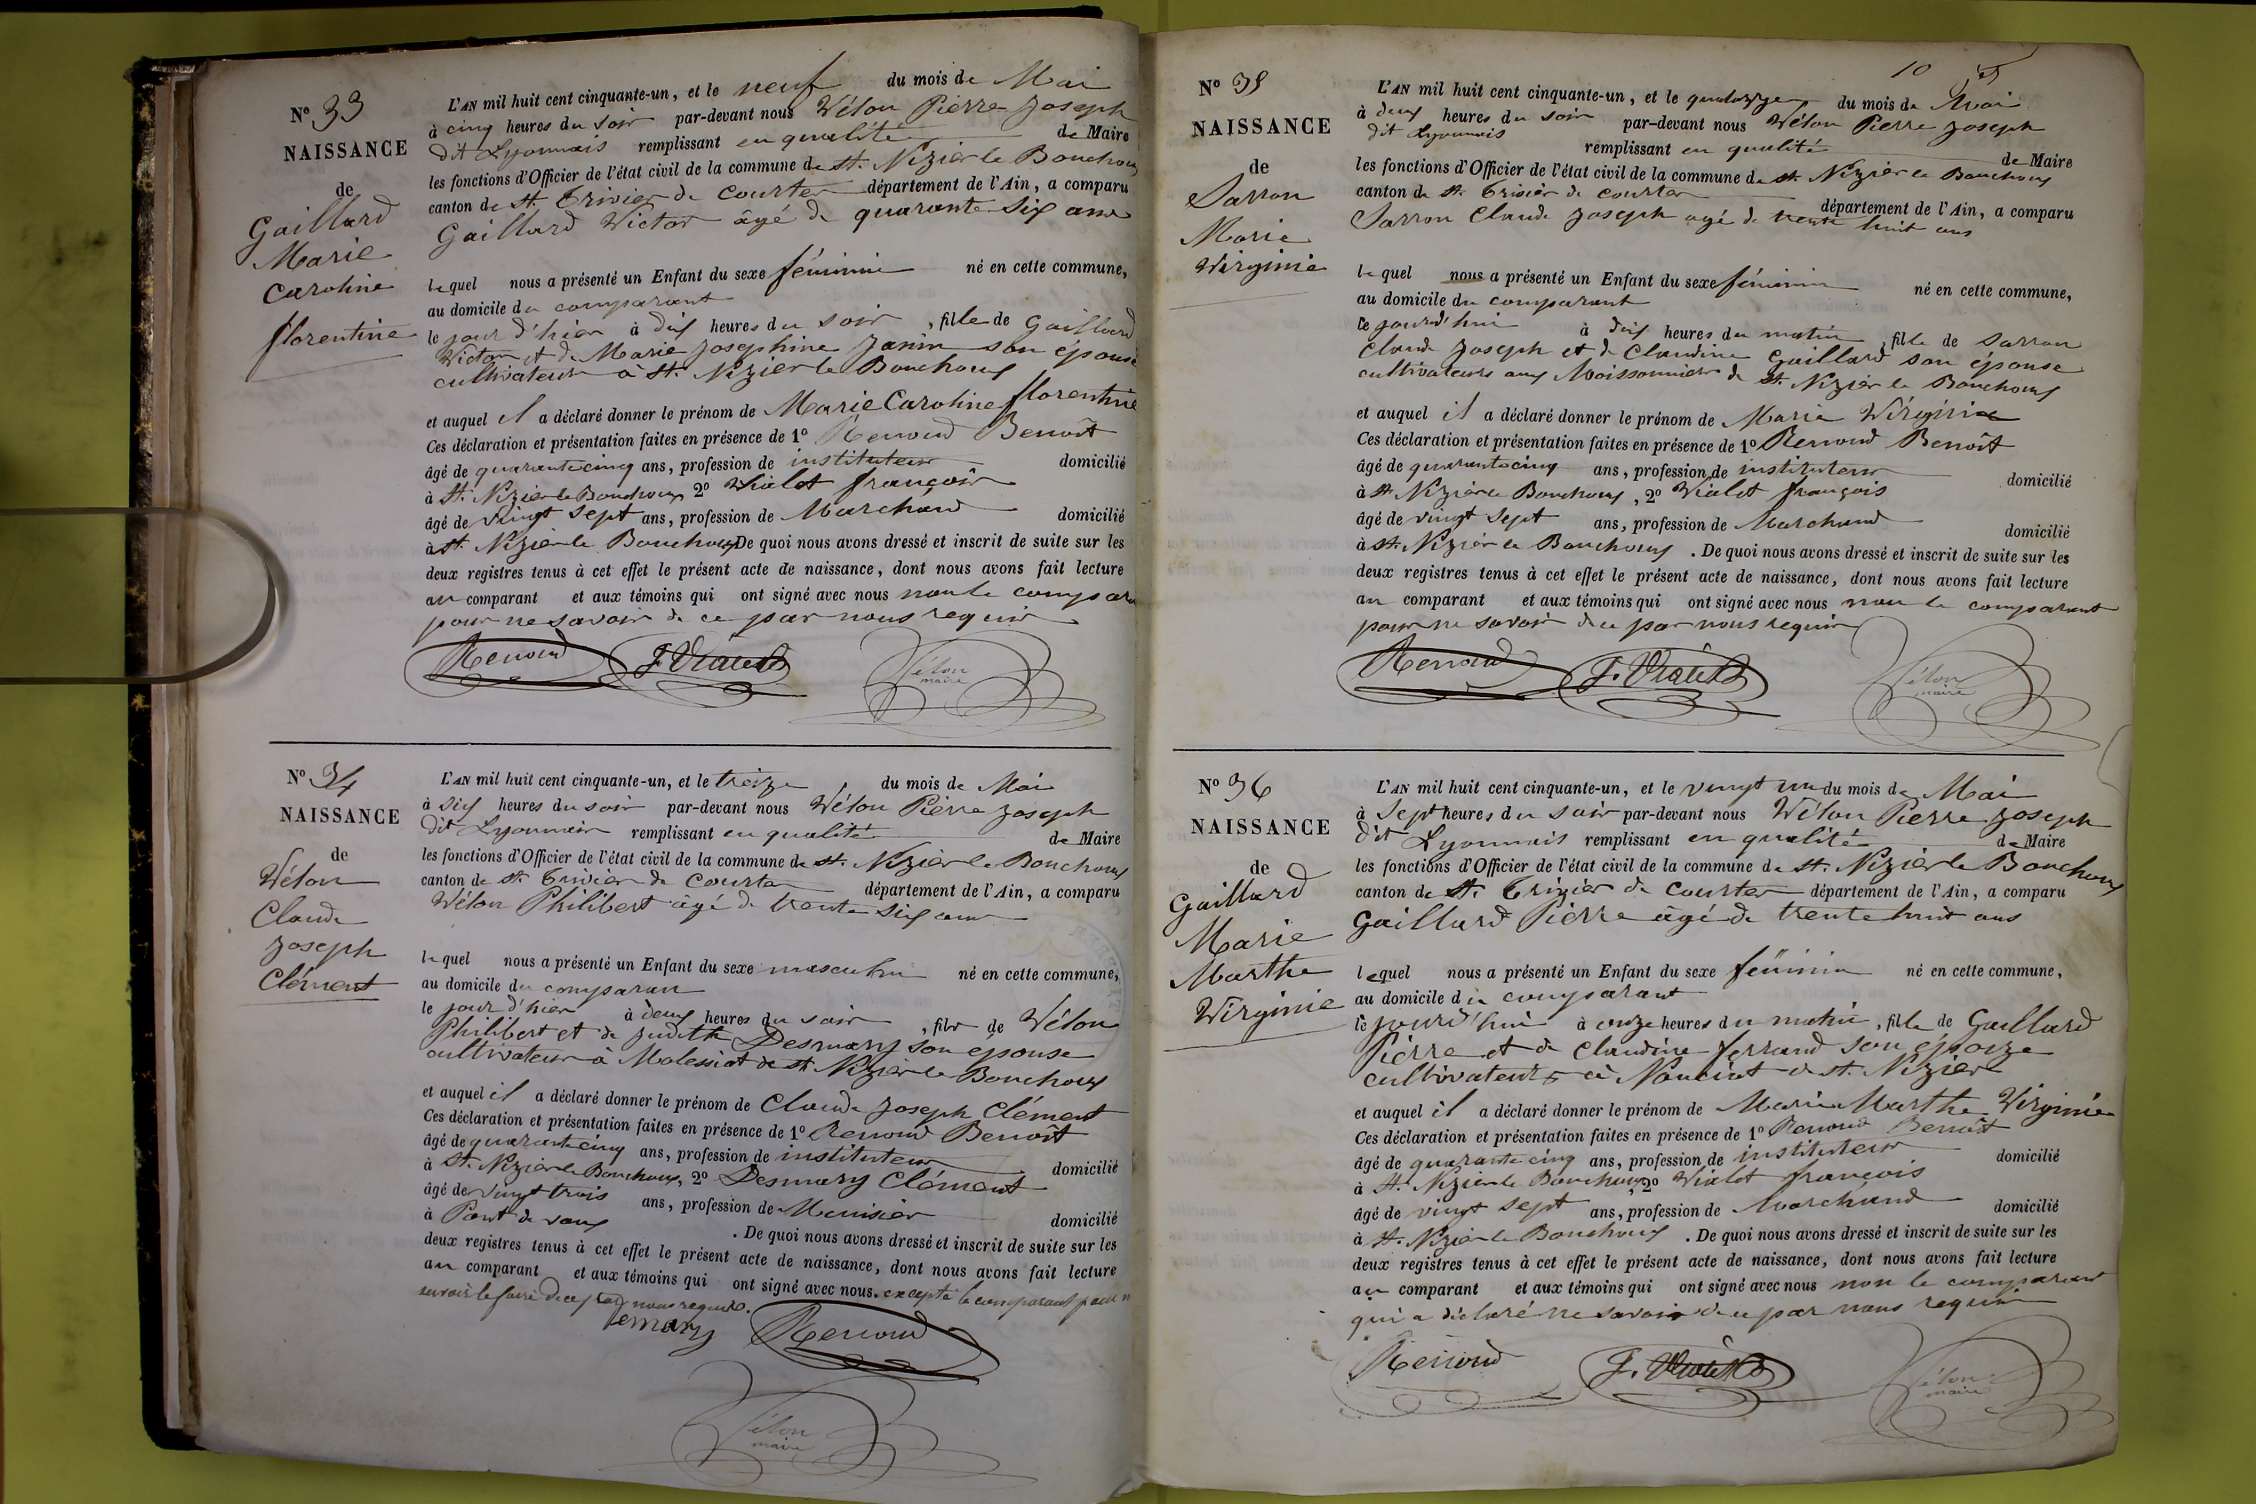 N° 33
NAISSANCE
de
Gaillard
Marie
Caroline
florentine
L'AN mil huit cent cinquante-un, et le neuf du mois de Mai
à cinq heures du soir par-devant nous Vélon Pierre Joseph
dit Lyonnais remplissant en qualité de Maire
les fonctions d'Officier de l'état civil de la commune de St. Nizier le Bouchoux
canton de St. Trivier de Courtes département de l'Ain, a comparu
Gaillard Victor âgé de quarante six ans
lequel nous a présenté un Enfant du sexe féminin né en cette commune,
au domicile du comparant
le jour d'hier à dix heures du soir, fille de Gaillard
Victor et de Marie Josephine Janin son épouse
cultivateurs à St. Nizier le Bouchoux
et auquel il a déclaré donner le prénom de Marie Caroline florentine
Ces déclaration et présentation faites en présence de 1° Renoud Benoît
âgé de quarante cinq ans, profession de instituteur domicilié
à St. Nizier le Bouchoux, 2° Vialet françois
âgé de vingt sept ans, profession de Marchand domicilié
à St. Nizier le Bouchoux De quoi nous avons dressé et inscrit de suite sur les
deux registres tenus à cet effet le présent acte de naissance, dont nous avons fait lecture
au comparant et aux témoins qui ont signé avec nous non le compara
pour ne savoir de ce par nous requir
Renoud F. Vialet Vélon
maire
N° 34
NAISSANCE
de
Vélon
Claude
Joseph
Clément
L'AN mil huit cent cinquante-un, et le treize du mois de Mai
à six heures du soir par-devant nous Vélon Pierre Joseph
dit Lyonnais remplissant en qualité de Maire
les fonctions d'Officier de l'état civil de la commune de St. Nizier le Bouchoux
canton de St. Trivier de Courtes département de l'Ain, a comparu
Vélon Philibert âgé de trente six ans
lequel nous a présenté un Enfant du sexe masculin né en cette commune,
au domicile du comparan
le jour d'hier à deux heures du soir, fils de Vélon
Philibert et de Judith Desmary son épouse
cultivateurs à Malessiat de St. Nizier le Bouchoux
et auquel il a déclaré donner le prénom de Claude Joseph Clément
Ces déclaration et présentation faites en présence de 1° Renoud Benoît
âgé de quarante cinq ans, profession de instituteur domicilié
à St. Nizier le Bouchoux, 2° Desmary Clément
âgé de vingt trois ans, profession de Menuisier domicilié
à Pont de vaux . De quoi nous avons dressé et inscrit de suite sur les
deux registres tenus à cet effet le présent acte de naissance, dont nous avons fait lecture
au comparant et aux témoins qui ont signé avec nous. excepté le comparant pour n
savoir le faire de ce par nous requis.
Renoud
Vélon
maire
10
N° 35
NAISSANCE
de
Sarron
Marie
Virginie
L'AN mil huit cent cinquante-un, et le quatorze du mois de Mai
à deux heures du soir par-devant nous Vélon Pierre Joseph
dit Lyonnais remplissant en qualité de Maire
les fonctions d'Officier de l'état civil de la commune de St. Nizier le Bouchoux
canton de St. Trivier de Courtes département de l'Ain, a comparu
Sarron Claude Joseph agé de trente huit ans
lequel nous a présenté un Enfant du sexe féminin né en cette commune,
au domicile du comparant
le jourd'hui à dix heures du matin, fille de Sarron
Claude Joseph et de Claudine Gaillard son épouse
cultivateurs aux Moissonnier de St. Nizier le Bouchoux
et auquel il a déclaré donner le prénom de Marie Virginie
Ces déclaration et présentation faites en présence de 1° Renoud Benoît
âgé de quarante cinq ans, profession de instituteur domicilié
à St. Nizier le Bouchoux, 2° Vialet françois
âgé de vingt sept ans, profession de Marchand domicilié
à St. Nizier le Bouchoux . De quoi nous avons dressé et inscrit de suite sur les
deux registres tenus à cet effet le présent acte de naissance, dont nous avons fait lecture
au comparant et aux témoins qui ont signé avec nous non le comparant
pour ne savoir de ce par nous requir
Renoud F. Vialet Vélon
maire
N° 36
NAISSANCE
de
Gaillard
Marie
Marthe
Virginie
L'AN mil huit cent cinquante-un, et le vingt un du mois de Mai
à Sept heures du soir par-devant nous Vélon Pierre Joseph
dit Lyonnais remplissant en qualité de Maire
les fonctions d'Officier de l'état civil de la commune de St. Nizier le Bouchoux
canton de St. Trivier de Courtes département de l'Ain, a comparu
Gaillard Pierre âgé de trente huit ans
lequel nous a présenté un Enfant du sexe féminin né en cette commune,
au domicile du comparant
le jourd'hui à onze heures du matin, fille de Gaillard
Pierre et de Claudine ferrand son epouze
cultivateurs à Nanciat de St. Nizier
et auquel il a déclaré donner le prénom de Marie Marthe Virginie
Ces déclaration et présentation faites en présence de 1° Renoud Benoît
âgé de quarante cinq ans, profession de instituteur domicilié
à St. Nizier le Bouchoux, 2° Vialet françois
âgé de vingt sept ans, profession de Marchand domicilié
à St. Nizier le Bouchoux . De quoi nous avons dressé et inscrit de suite sur les
deux registres tenus à cet effet le présent acte de naissance, dont nous avons fait lecture
au comparant et aux témoins qui ont signé avec nous non le comparant
qui a déclaré ne savoir de ce par nous requir
Renoud F. Vialet Vélon
maire